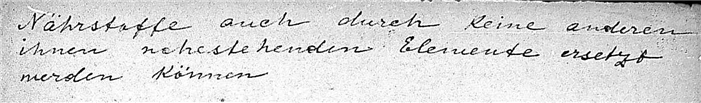 Nährstoffe auch durch keine anderen
ihnen nahestehenden Elemente ersetzt
werden können